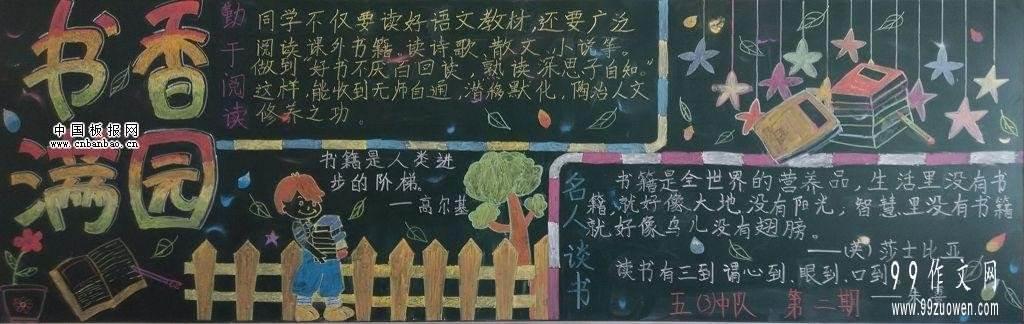 书香
满园
中国板报网
www.cnbanbao.cn
勤于阅读
同学不仅要读好语文教材,还要广泛
阅读课外书籍,读诗歌、散文、小说等。
做到“好书不厌百回读,熟读深思子自知。”
这样,能收到无师自通,潜移默化,陶冶人文
修养之功。
书籍是人类进
步的阶梯。
——高尔基
名人谈书
书籍是全世界的营养品,生活里没有书
籍,就好像大地没有阳光;智慧里没有书籍
就好像鸟儿没有翅膀。
——(英)莎士比亚
读书有三到谓心到,眼到,口到
五(3)中队 第二期
99作文网
www.99zuowen.com